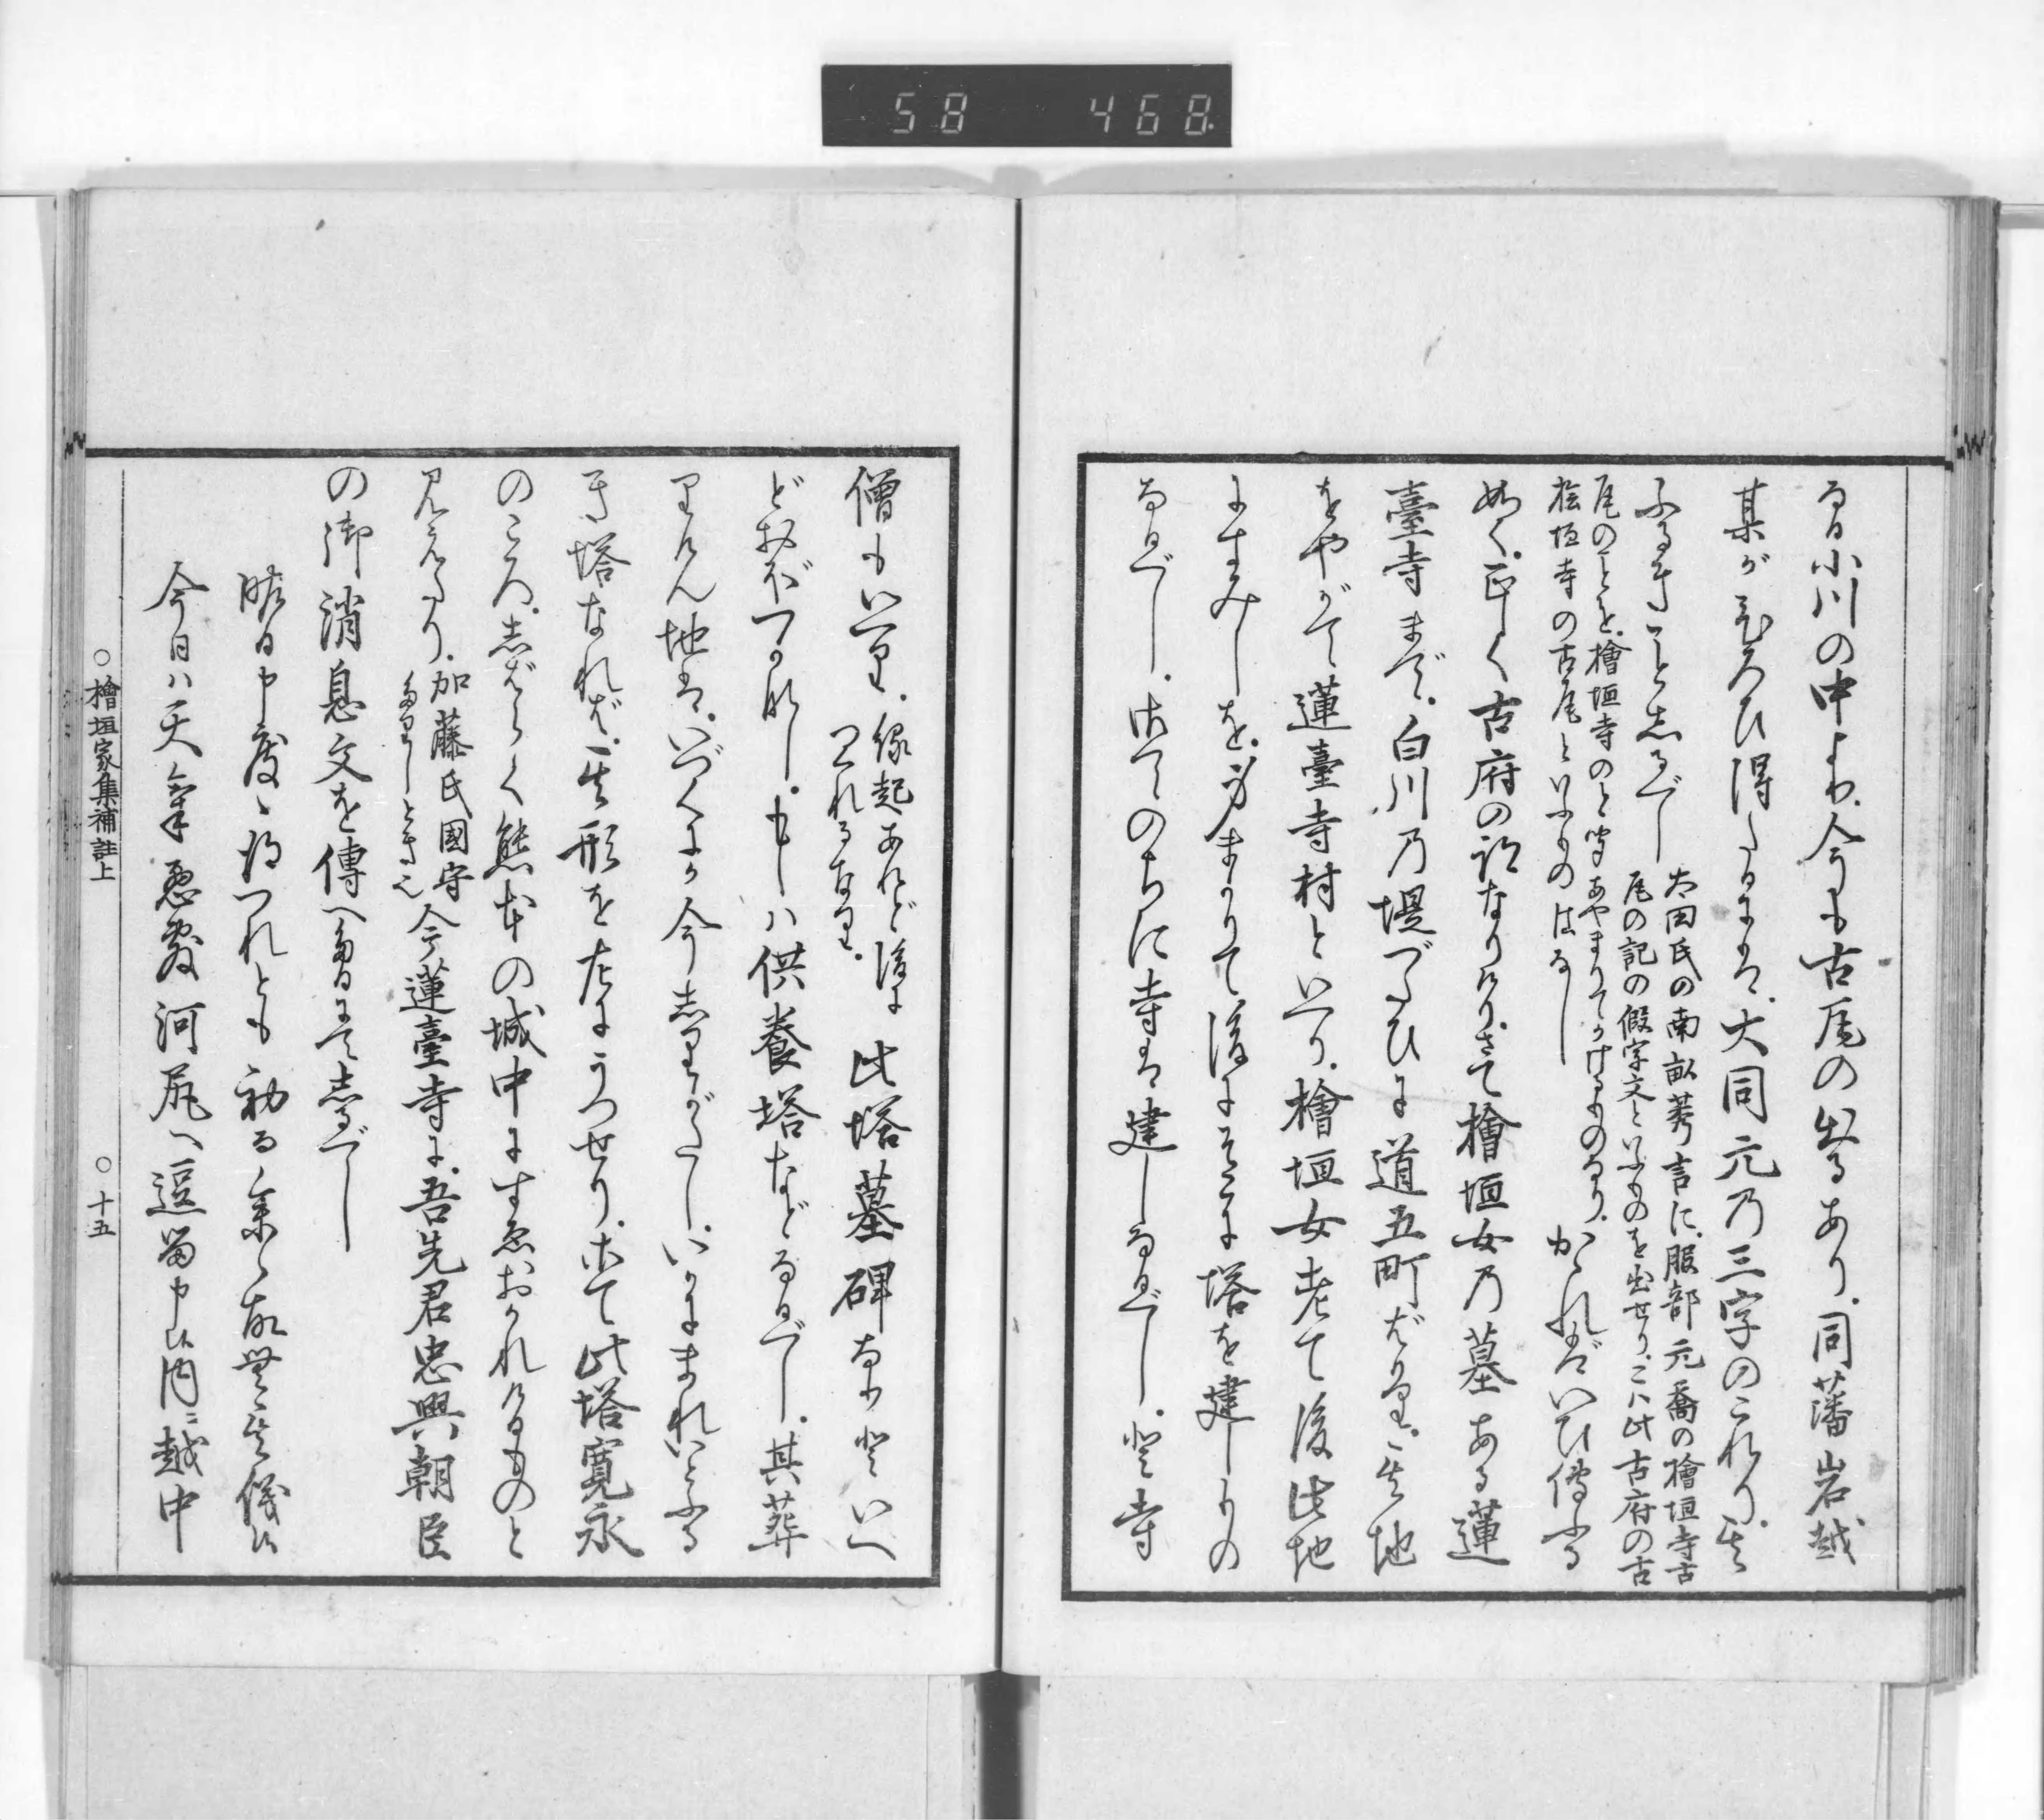 58 468
る小川の中より、今も古瓦の出るあり、同藩岩越
某がひろひ得たるには、大同元乃三字のこれり、其
ふるきことしるべし
太田氏の南畝莠言に、服部元喬の檜垣寺古
瓦の記の假字文といふものを出せり、こハ此古府の古
瓦のことを、檜垣寺のと字あやまりてかけるものなり、
桧垣寺の古瓦といふもの はなし
かゝれバいひ傳ふる
如く、正しく古府の跡なりけり、さて檜垣女乃墓ある蓮
臺寺まで、白川乃堤づたひに道五町ばかり、其地
をやがて蓮臺寺村といへり、檜垣女老て後此地
にすみしを、身まかりて後にそこに塔を建しもの
なるべし、さてのちに寺は建しなるべし、寺
僧もいへり、
縁起あれど後に
つくれるなり、
此塔墓碑なりといへ
どおぼつかなし、もしハ供養塔などなるべし、其葬
りけん地は、いづくにか今しりがたし、いかにまれいとふる
き塔なれば、其形を左にうつせり、さて此塔寛永
のころ、しばらく熊本の城中にすゑおかれけるものと
見えたり、
加藤氏國守
なりしときも
今蓮臺寺に、吾先君忠興朝臣
の御消息文を傳へたるにてしるべし
昨日申度候つれとも初る
今日ハ天氣惡敷河尻へ逗留申候内ニ越中
○檜垣家集補註上 ○十五